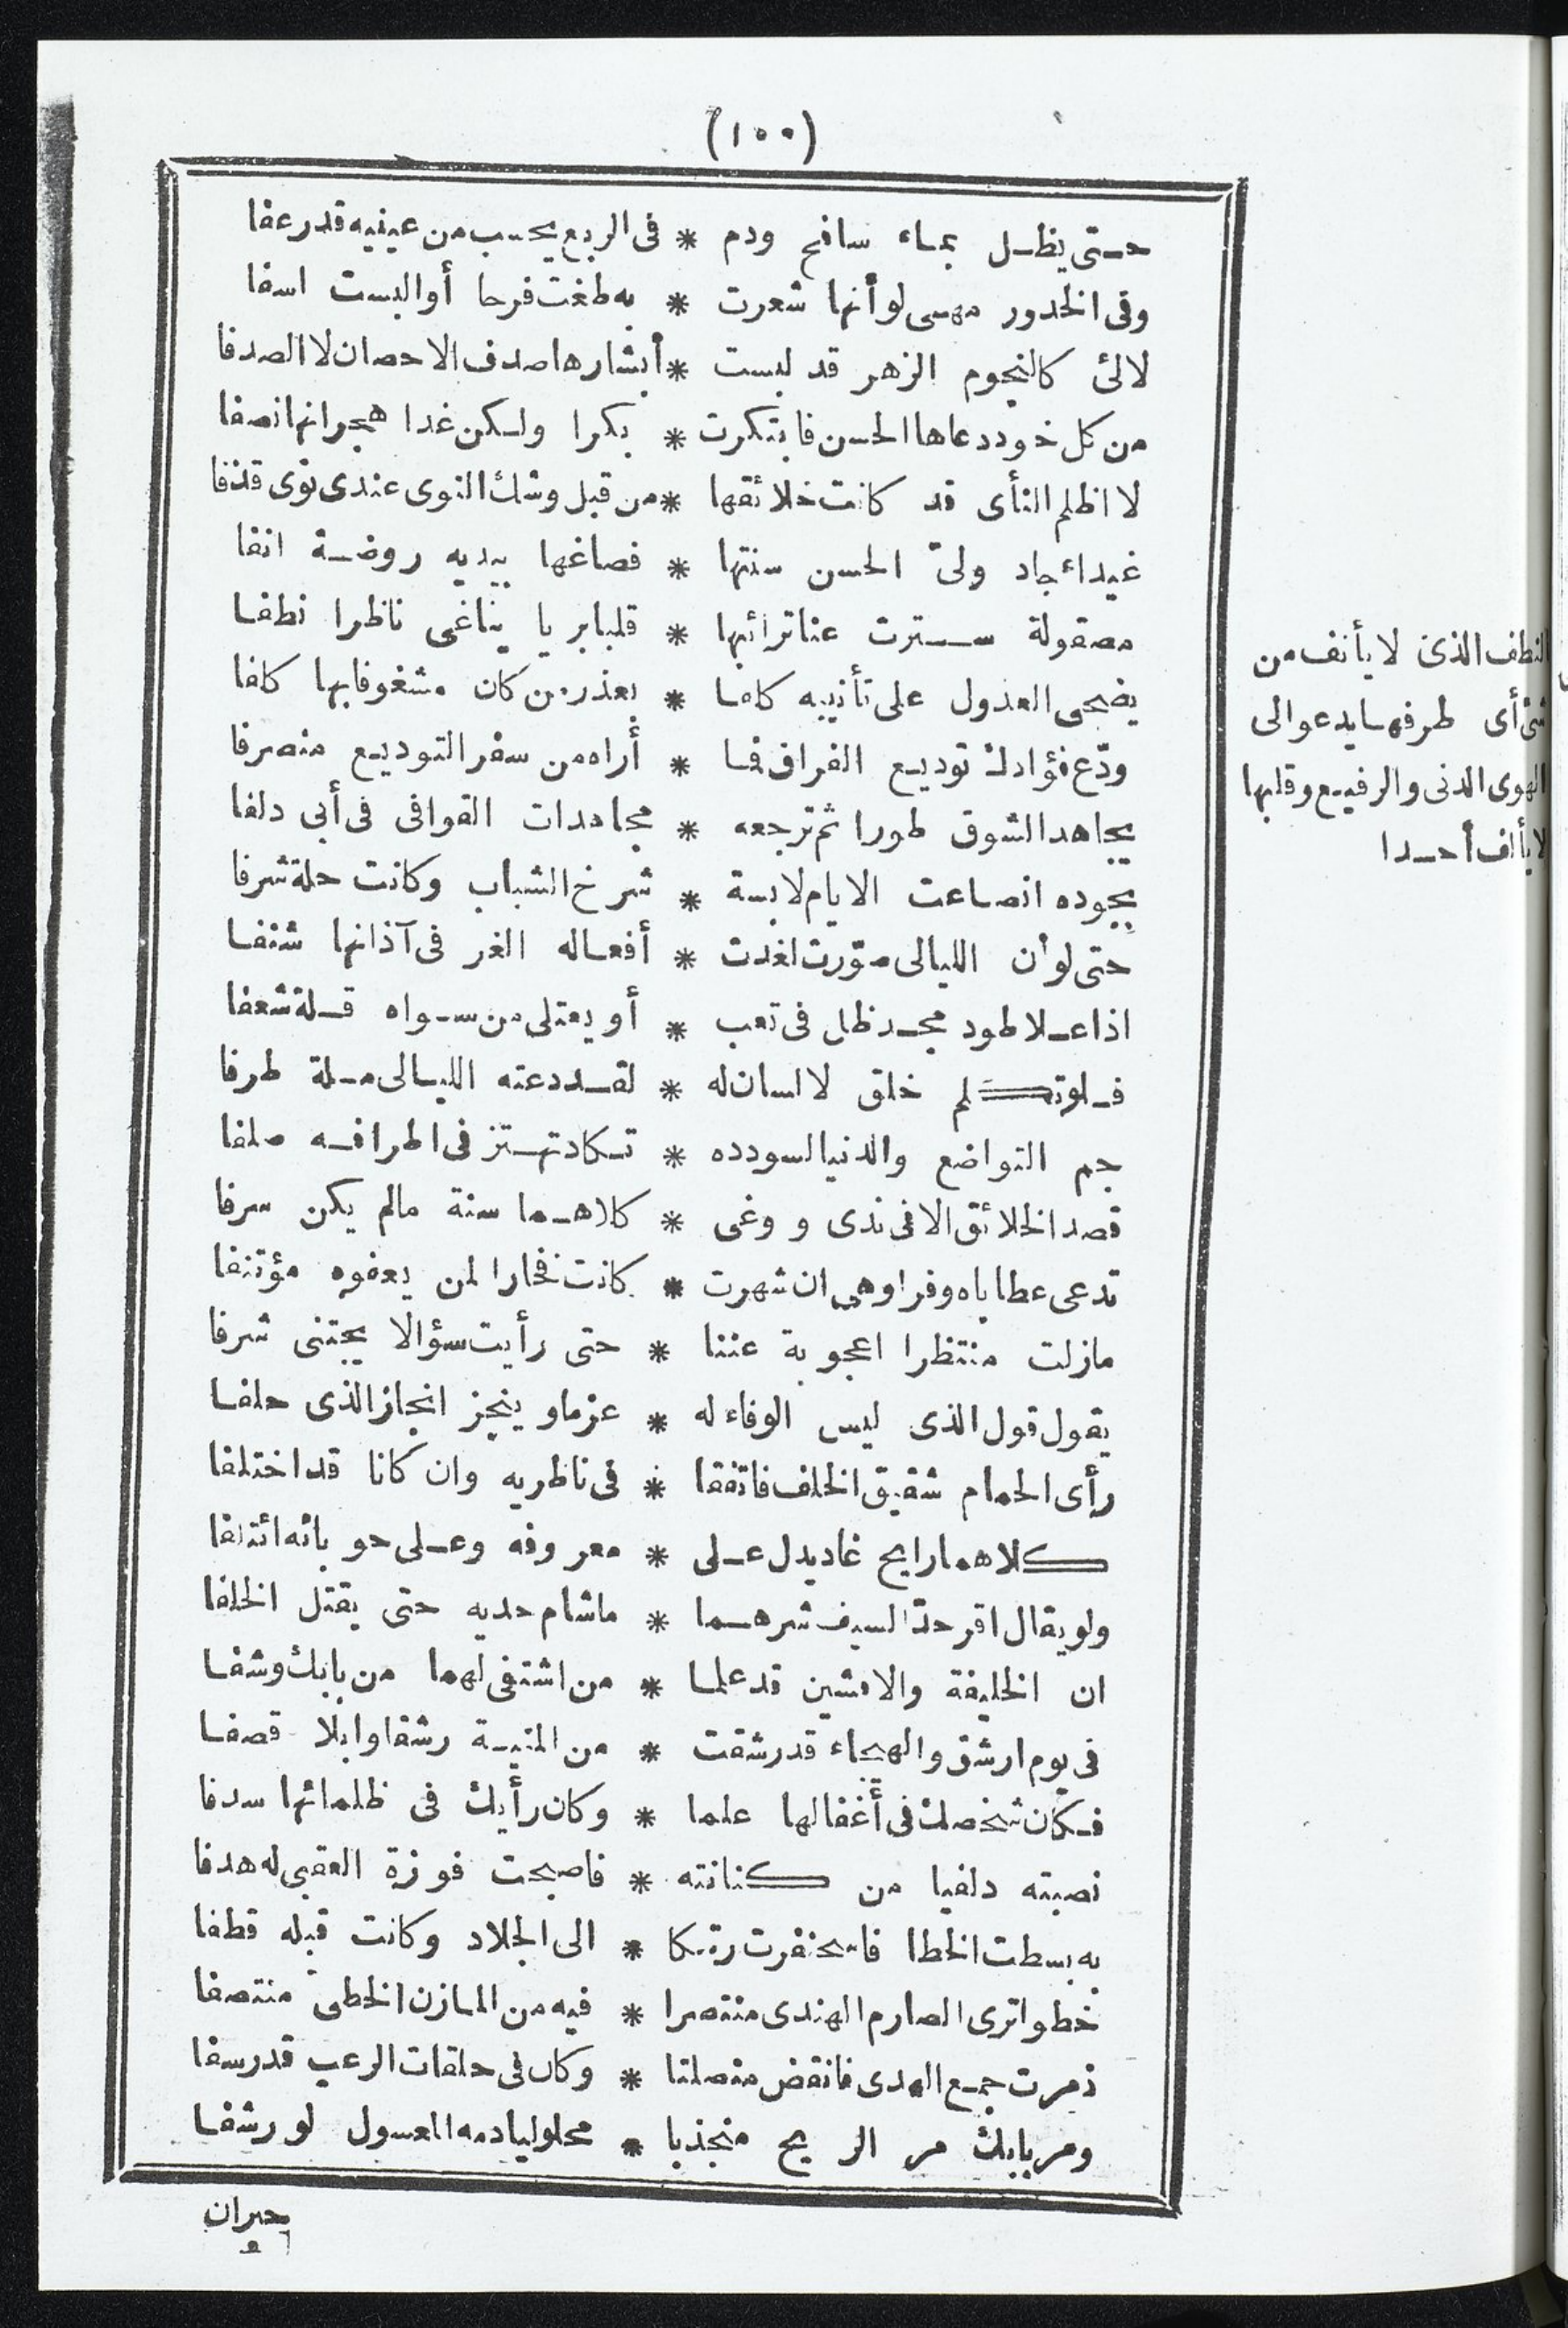 (١٠٠)
حتى يظل بماء سافح ودم * فى الربع يحسب من عينيه قدرعفا
وفى الخدور مهى لو أنها شعرت * به طغت فرحا أوالبست اسفا
لالئ كالنجوم الزهر قد لبست * أبشارها صدف الاحصان لا الصدفا
من كل خود دعاها الحسن فابتكرت * بكرا ولكن غدا هجرانها نصفا
لا اظلم النأى قد كانت خلائقها * من قبل وشك النوى عندى نوى قذفا
غيداء جاد ولىّ الحسن سنتها * فصاغها بيديه روضة انفا
مصقولة سترت عنا ترائبها * قلبا بريا يناغى ناظرا نطفا
يضحى العذول على تأنيبه كلفا * بعذر من كان مشغوفا بها كلفا
ودّع فؤادك توديع الفراق فما * أراه من سفر التوديع منصرفا
يجاهد الشوق طورا ثم ترجعه * مجاهدات القوافى فى أبى دلفا
بجوده انصاعت الايام لابسة * شرخ الشباب وكانت حلة شرفا
حتى لوأن الليالى صوّرت لغدت * أفعاله الغر فى آذانها شنفا
اذا علا طود مجد ظل فى تعب * أو يعتلى من سواه قلة شعفا
فلو تكلم خلق لا لسان له * لقد دعته الليالى ملة طرفا
جم التواضع والدنيا لسودده * تكاد تهتز فى اطرافه صلفا
قصد الخلائق الا فى ندى و وغى * كلاهما سنة مالم يكن سرفا
تدعى عطاياه وفرا وهى ان شهرت * كانت فخارا لمن يعفوه مؤتنفا
مازلت منتظرا اعجوبة عننا * حتى رأيت سؤالا يجتنى شرفا
يقول قول الذى ليس الوفاء له * عزما وينجز انجاز الذى حلفا
رأى الحمام شقيق الخلف فاتفقا * فى ناظريه وان كانا قد اختلفا
كلاهما رايح غاد يدل على * معروفه وعلى حوبائه ائتلفا
ولو يقال اقر حدّ السيف شرهما * ماشام حديه حتى يقتل الخلفا
ان الخليفة والافشين قد علما * من اشتفى لهما من بابك وشفا
فى يوم ارشق والهيجاء قد رشقت * من المنية رشقا وابلا قصفا
فكان شخصك فى أغفالها علما * وكان رأيك فى ظلمائها سدفا
نصبته دلفيا من كنانته * فاصبحت فوزة العقبى له هدفا
به بسطت الخطا فاسحنفرت رتكا * الى الجلاد وكانت قبله قطفا
خطوا ترى الصارم الهندى منتصرا * فيه من المازن الخطىّ منتصفا
ذمرت جمع الهدى فانقض منصلتا * وكان فى حلقات الرعب قد رسفا
ومر بابك مر الريح منجذبا * محلوليا دمه المعسول لو رشفا
جيران
النطف الذى لا يأنف من
شئ أى طرفها يدعو الى
الهوى الدنى والرفيع وقلبها
لا يألف أحدا